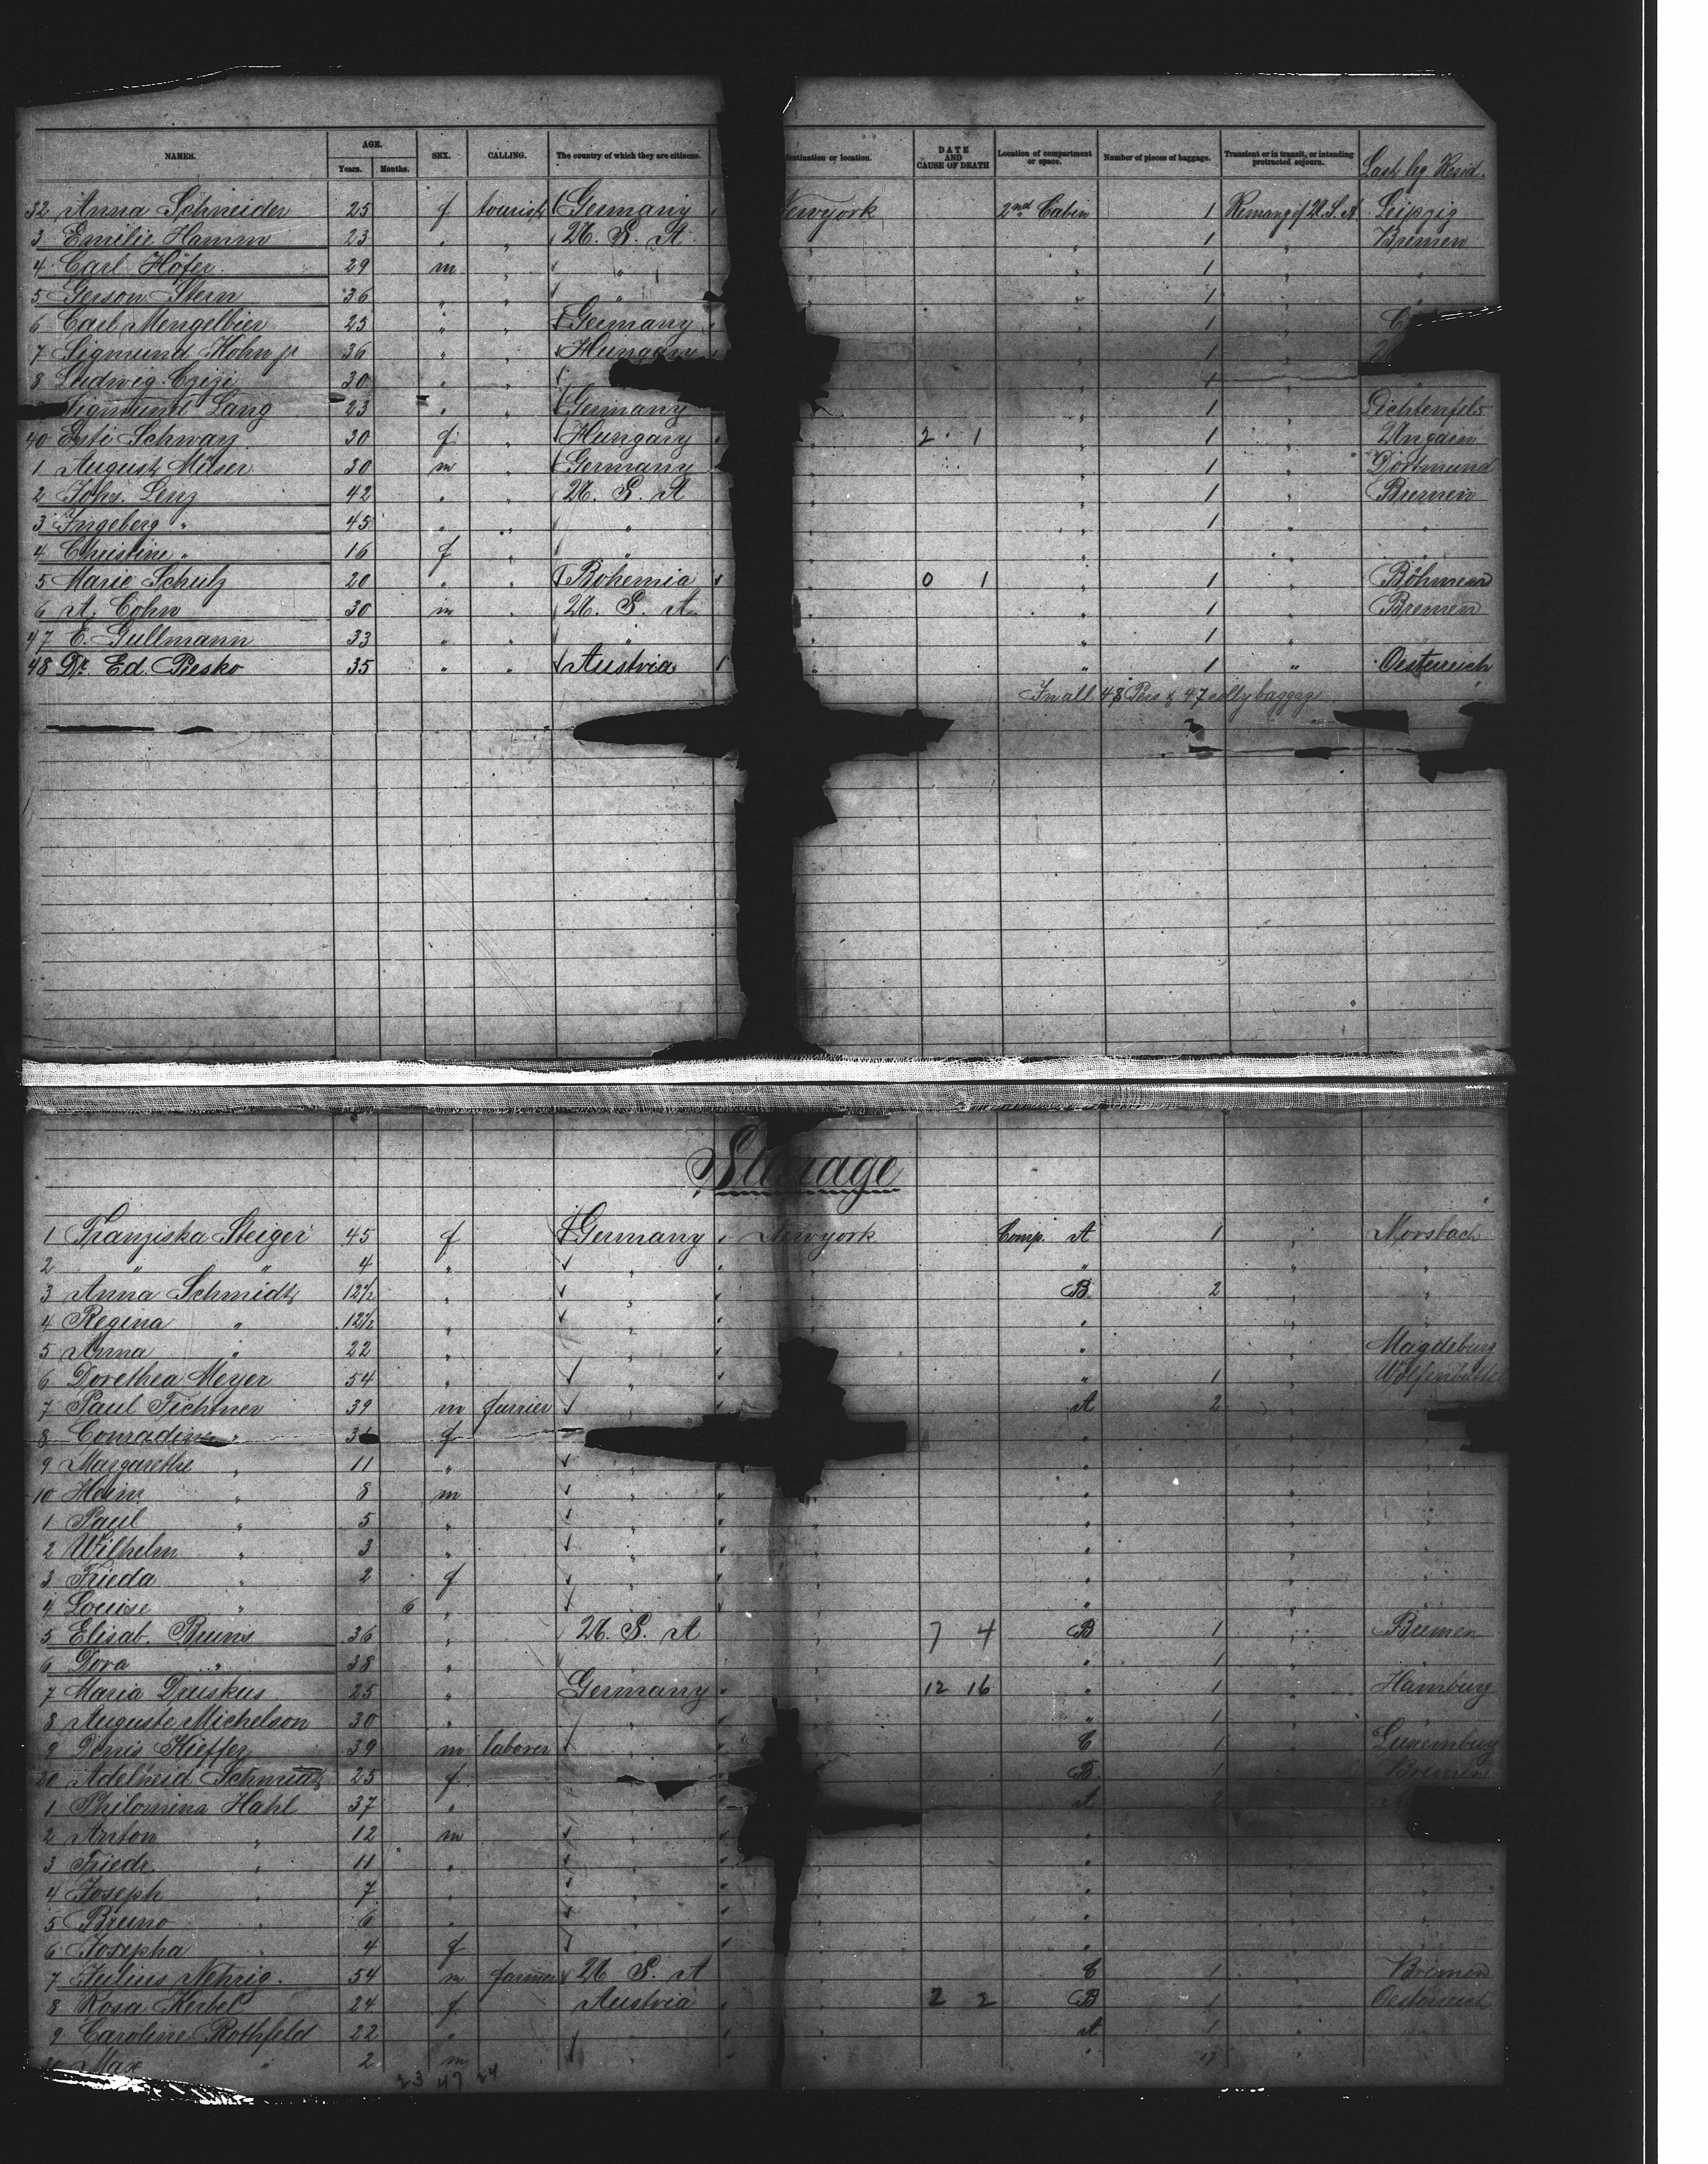 NAMES. AGE. Years. Months. SEX. CALLING. The country of which they are citizens. destination or location. DATE AND CAUSE OF DEATH Location of compartment or space. Number of pieces of baggage. Transient or in transit, or intending protracted sojourn. Last leg Resid.
32 Anna Schneider 25 f tourist Germany Newyork 2nd Cabin 1 U. S. A Leipzig
3 Emilie Hamm 23 " " U. S. A " " 1 " Bremen
4 Carl Höfer 29 m " " " " 1 " "
5 Gerson Stern 36 " " " " " 1 "
6 Carl Mengelbier 25 " " Germany " " 1 "
7 Sigmund Kohn jr 36 " " Hungary " 1 "
8 Ludwig 30 " " " 1 "
Sigmund Lang 23 " " Germany " " 1 " Lichtenfels
40 Esti Schwarz 30 f " Hungary " 2 1 " 1 " Ungarn
1 August Milser 30 m " Germany " " 1 " Dortmund
2 Johs. Lenz 42 " " U. S. A " " 1 " Bremen
3 Ingeberg " 45 " " " " " 1 " "
4 Christine " 16 f " " " " " "
5 Marie Schulz 20 " " Bohemia " 0 1 " 1 " Böhmen
6 A. Cohn 30 m " U. S. A. " " 1 " Bremen
47 E. Gullmann 33 " " " " " 1 " "
48 Dr. Ed. Piesko 35 " " Austria " " 1 " Oesterreich
In all 48 Pass & 47 colly baggage
Steerage
1 Franziska Steiger 45 f Germany Newyork Comp. A 1 " Morsbach
2 " " 4 " " " " " "
3 Anna Schmidt 12 1/2 " " " B 2 " "
4 Regina " 12 1/2 " " " " "
5 Anna " 22 " " " " Magdeburg
6 Dorethea Meyer 54 " " " " 1 " Wolfenbüttel
7 Paul Fichtner 39 m farrier " " A 2 " "
8 " f " " "
9 Margarethe " 11 " " " " "
10 Heinr. " 8 m " " " " "
1 Paul " 5 " " " " " "
2 Wilhelm " 3 " " " " " "
3 Frieda " 2 f " " " " "
4 Louise " 6 " " " " " "
5 Elisab. Bruns 36 " U. S. A " 7 4 B 1 " Bremen
6 Dora " 38 " " " " 1 " "
7 Maria Druskus 25 " Germany " 12 16 " 1 " Hamburg
8 Auguste Michelson 30 " " " " 1 " "
9 Denis Kieffer 39 m laborer " " C 1 " Luxemburg
20 Adelheid Schmidt 25 f B 1 " Bremen
1 Philomena Hahl 37 " A 2
2 Anton " 12 m " "
3 Friedr. " 11 " " " "
4 Joseph " 7 " " " "
5 Bruno " 6 " " " "
6 Josepha " 4 f "
7 Julius Nehrig. 54 m farmer U. S. A C 1 " Bremen
8 Rosa Kerbel 24 f Austria 2 2 B 1 " Oesterreich
9 Caroline Rothfeld 22 " " " A 1 "
Max " 2 m " " " "
23 47 24